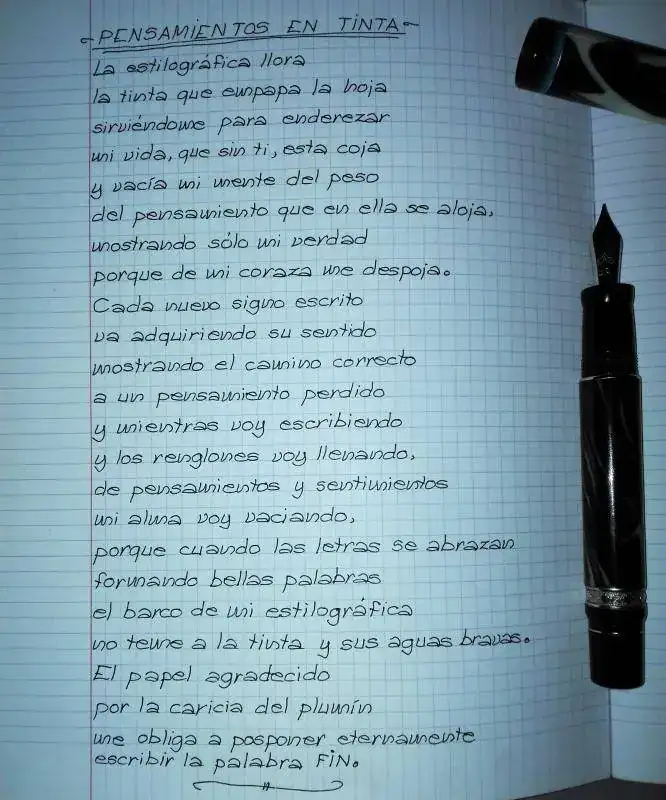 PENSAMIENTOS EN TINTA
La estilográfica llora
la tinta que empapa la hoja
sirviéndome para enderezar
mi vida, que sin ti, esta coja
y vacía mi mente del peso
del pensamiento que en ella se aloja,
mostrando sólo mi verdad
porque de mi coraza me despoja.
Cada nuevo signo escrito
va adquiriendo su sentido
mostrando el camino correcto
a un pensamiento perdido
y mientras voy escribiendo
y los renglones voy llenando,
de pensamientos y sentimientos
mi alma voy vaciando,
porque cuando las letras se abrazan
formando bellas palabras
el barco de mi estilográfica
no teme a la tinta y sus aguas bravas.
El papel agradecido
por la caricia del plumín
me obliga a posponer eternamente
escribir la palabra FiN.